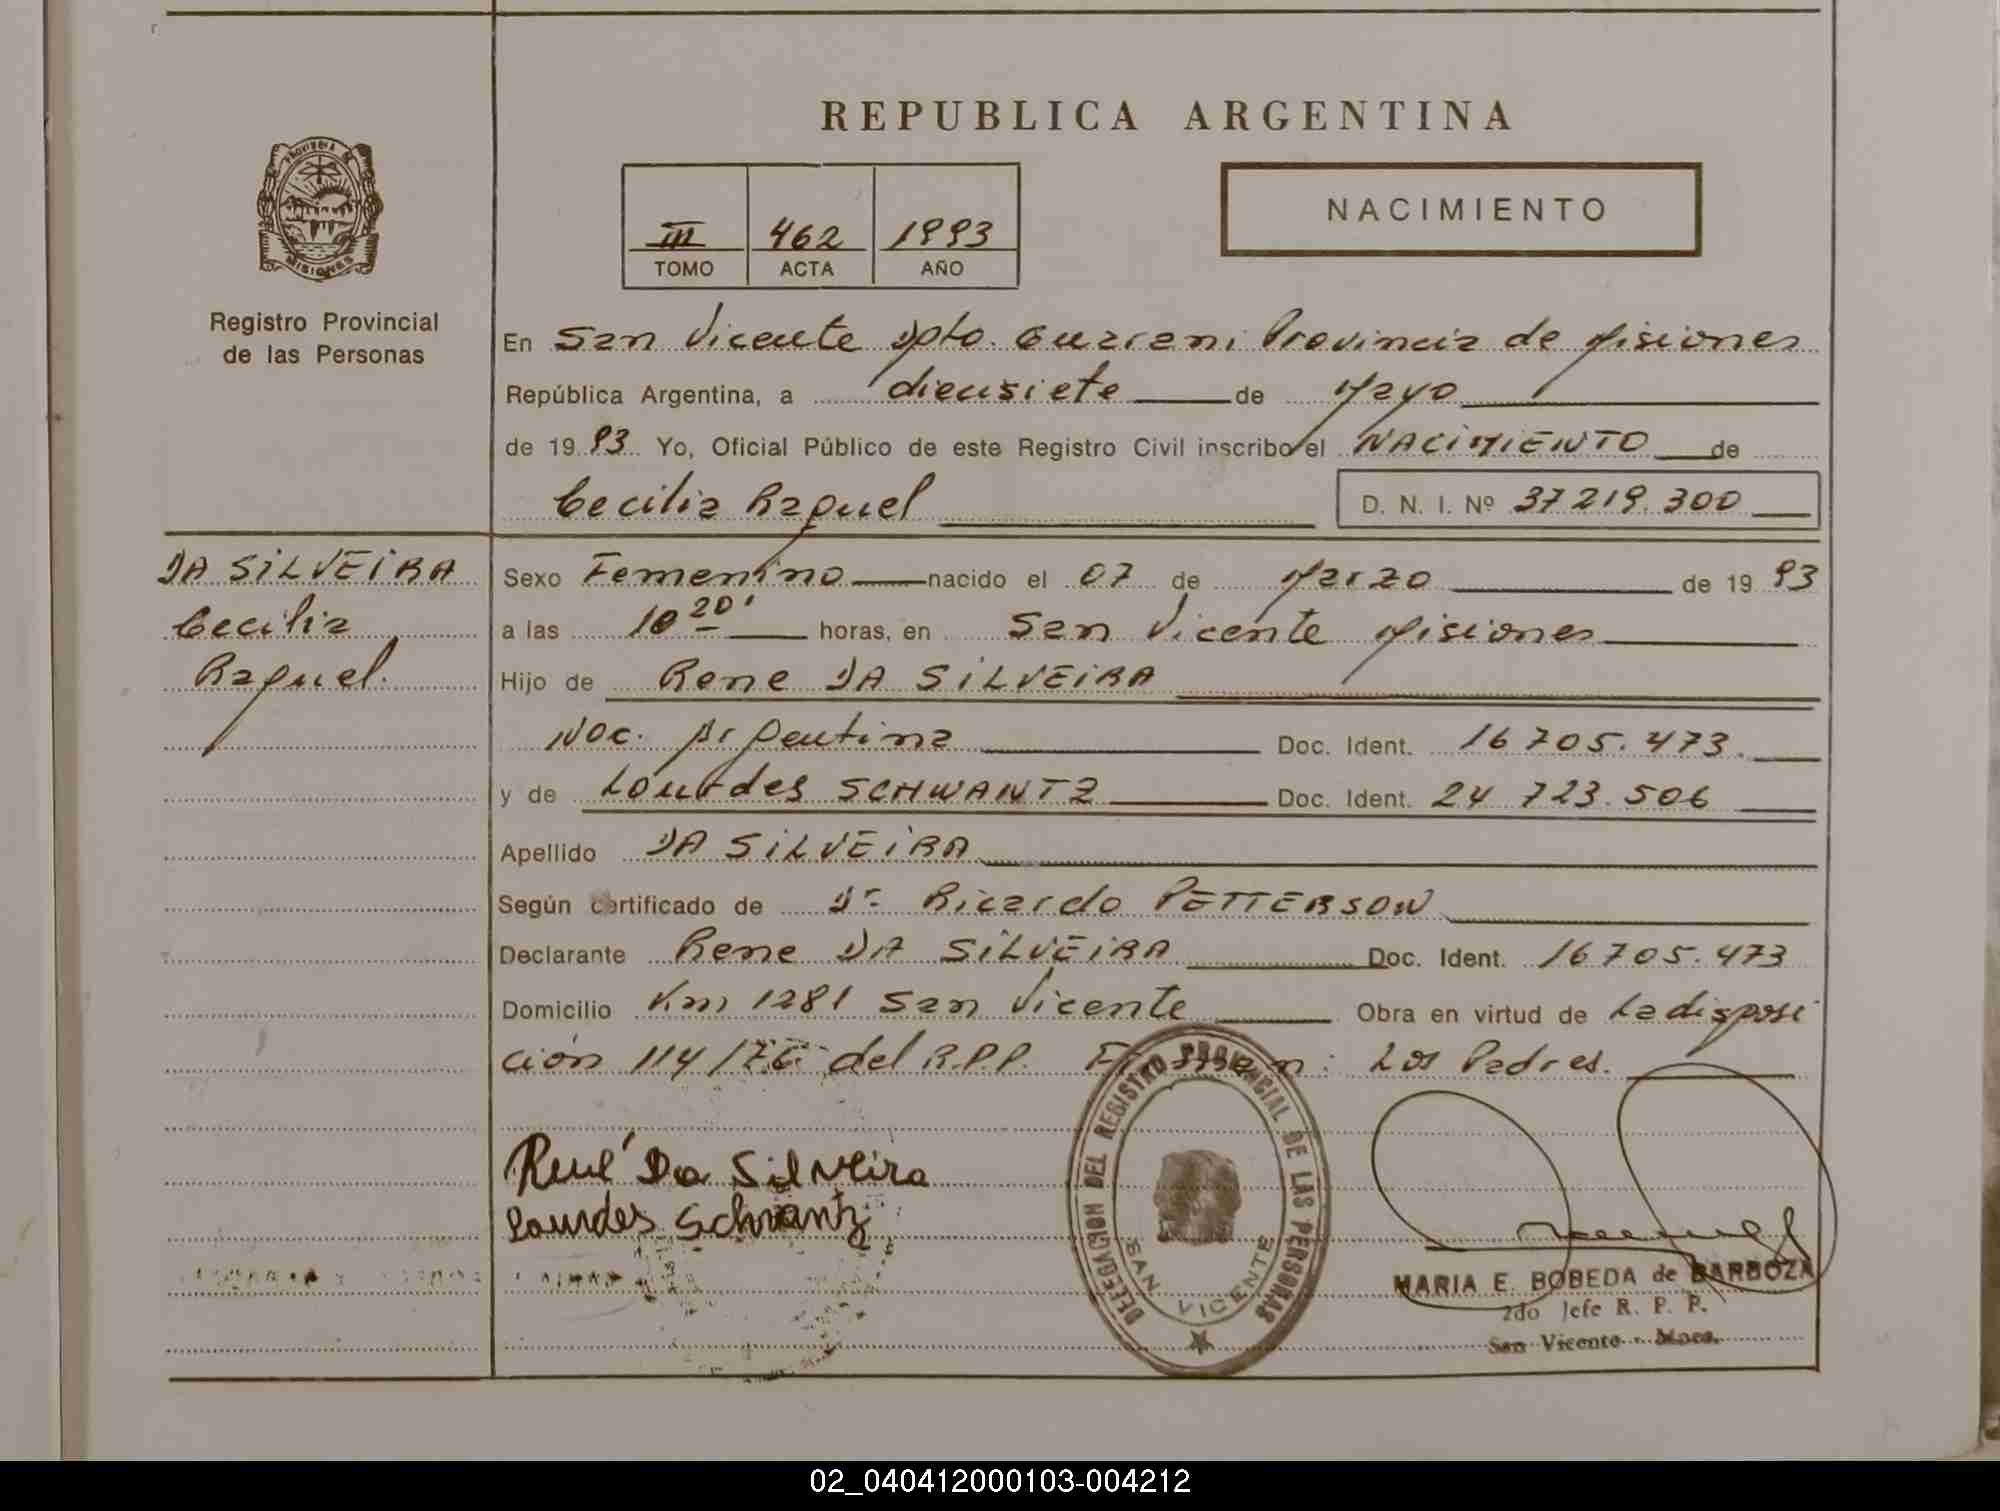 REPUBLICA ARGENTINA
PROVINCIA DE
MISIONES
Registro Provincial
de las Personas
III 462 1993
TOMO ACTA AÑO
NACIMIENTO
En San Vicente Dpto. Guarani Provincia de Misiones
República Argentina, a diecisiete de Mayo
de 1993 Yo, Oficial Público de este Registro Civil inscribo el NACIMIENTO de
Cecilia Raquel D. N. I. Nº 37 219.300
DA SILVEIRA
Cecilia
Raquel.
Sexo Femenino nacido el 07 de Marzo de 1993
a las 10 20' horas, en San Vicente Misiones
Hijo de Rene DA SILVEIRA
Nac. Argentina Doc. Ident. 16 705.473.
y de Lourdes SCHWANTZ Doc. Ident. 24 723.506
Apellido DA SILVEIRA
Según certificado de Dr Ricardo PETTERSON
Declarante Rene DA SILVEIRA Doc. Ident. 16 705.473
Domicilio Km 1281 San Vicente Obra en virtud de La disposi
ción 114/76 del R.P.P. Firman: Los Padres.
René Da Silveira
Lourdes Schwantz
DELEGACION DEL REGISTRO PROVINCIAL DE LAS PERSONAS
SAN VICENTE
MARIA E. BOBEDA de BARBOZA
2do Jefe R. P. P.
San Vicente - Mnes.
02_040412000103-004212